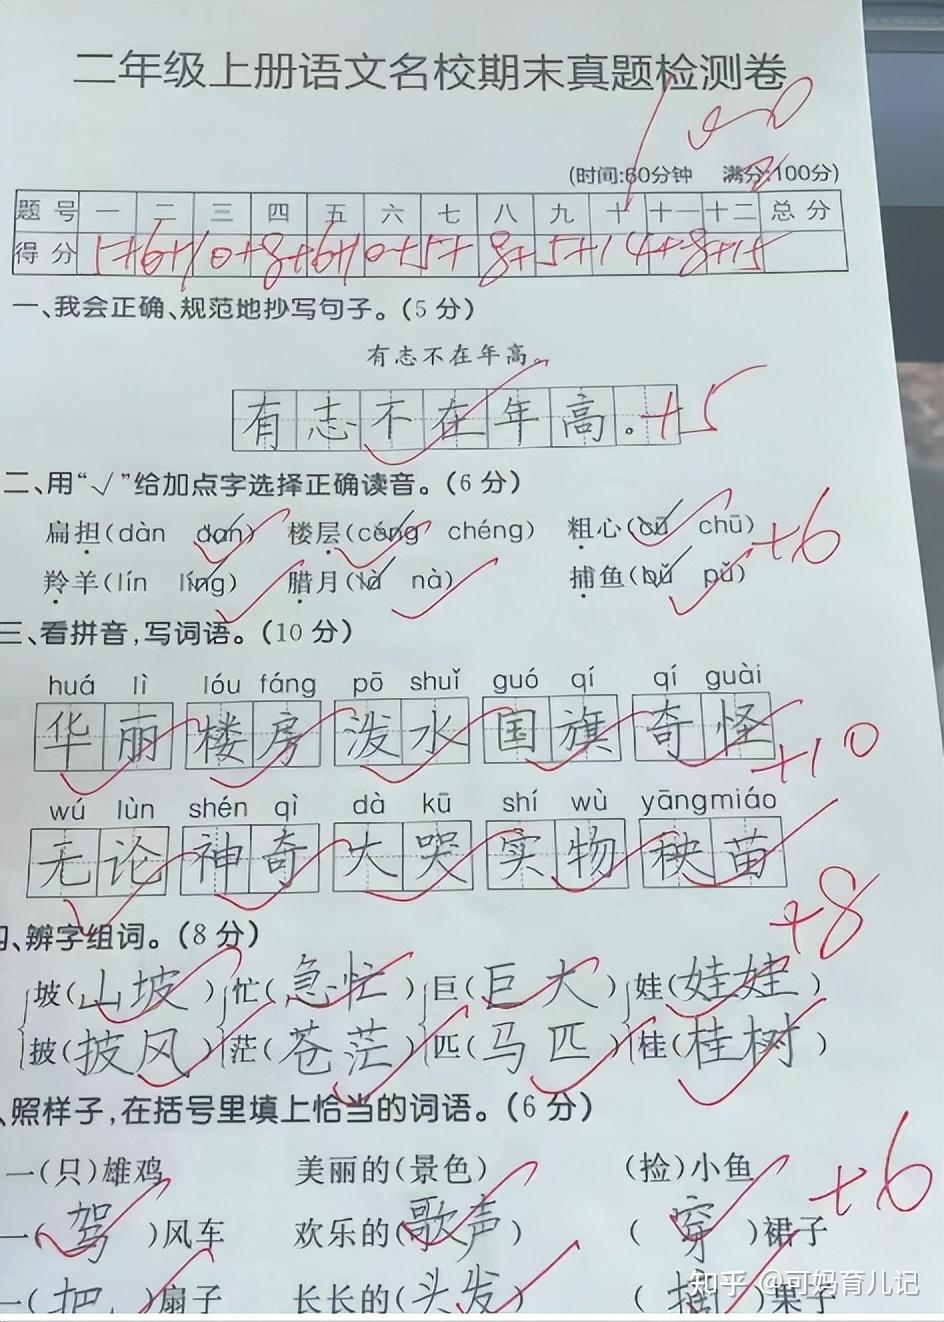 二年级上册语文名校期末真题检测卷
100
(时间:60分钟 满分:100分)
题号 一 二 三 四 五 六 七 八 九 十 十一 十二 总分
得分 5+6+10+8+6+10+5+8+5+14+8+15
一、我会正确、规范地抄写句子。(5分)
有志不在年高。
有志不在年高。+5
二、用“√”给加点字选择正确读音。(6分)
扁担(dàn dan) 楼层(céng chéng) 粗心(cū chū) +6
羚羊(lín líng) 腊月(là nà) 捕鱼(bǔ pǔ)
三、看拼音,写词语。(10分)
huá lì lóu fáng pō shuǐ guó qí qí guài
华丽 楼房 泼水 国旗 奇怪 +10
wú lùn shén qì dà kū shí wù yāngmiáo
无论 神奇 大哭 实物 秧苗
、辨字组词。(8分) +8
坡(山坡) 忙(急忙) 巨(巨大) 娃(娃娃)
披(披风) 茫(苍茫) 匹(马匹) 桂(桂树)
、照样子,在括号里填上恰当的词语。(6分)
一(只)雄鸡 美丽的(景色) (捡)小鱼 +6
一(驾)风车 欢乐的(歌声) (穿)裙子
一(把)扇子 长长的(头发) (摘)果子
知乎 @可妈育儿记